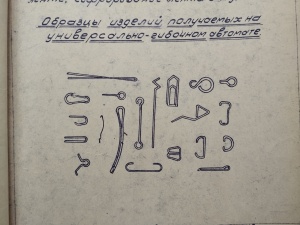 Образцы изделий, получаемых на
универсально-гибочном автомате.